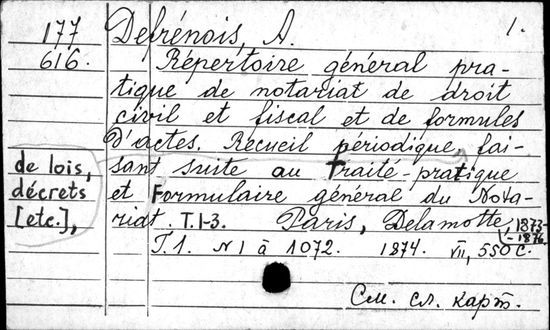 177
616.
Defrénois, A.
1.
Répertoire général pra-
tique de notariat de droit
civil et fiscal et de formules
d'actes. Recueil périodique, fai-
de lois,
décrets
[etc.],
sant suite au Traité-pratique
et Formulaire général du Nota-
riat. T. 1-3. Paris, Delamotte, 1873-
-1876.
T. 1. N 1 à 1072. 1874. VII, 550 с.
См. сл. карт.